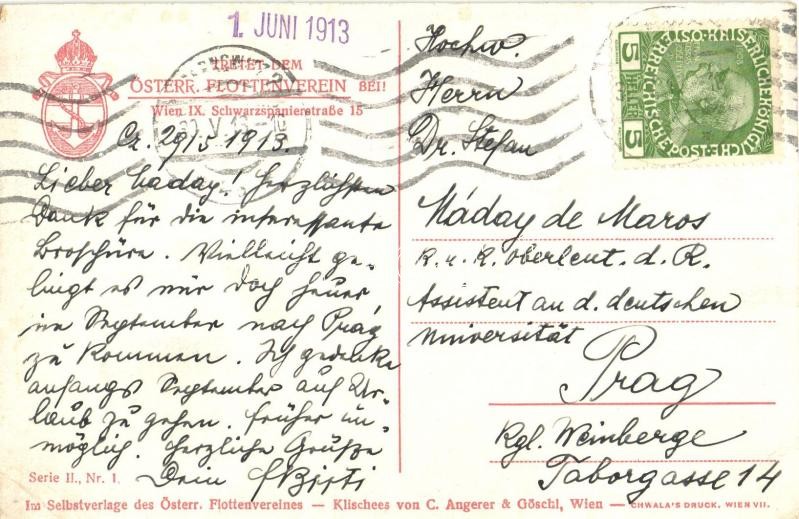 1. JUNI 1913
TRETET DEM
ÖSTERR. FLOTTENVEREIN BEI!
Wien IX. Schwarzspanierstraße 15
Cz. 29/5 1913.
Lieber Maday! Herzlichsten
Dank für die interessante
Broschüre. Vielleicht ge-
lingt es mir doch heuer
im September nach Prag
zu kommen. Ich gedenke
anfangs September auf Ur-
laub zu gehen. Früher un-
möglich. Herzliche Grüße
Dein
Hochw.
Herrn
Dr. Stefan
Máday de Maros
K. u. K. Oberleut. d. R.
Assistent an d. deutschen
Universität
Prag
Kgl. Weinberge
Taborgasse 14
5 HELLER 5
KAISERLICHE KÖNIGLICHE ÖSTERREICHISCHE POST
Serie II., Nr. 1.
Im Selbstverlage des Österr. Flottenvereines — Klischees von C. Angerer & Göschl, Wien — CHWALA'S DRUCK, WIEN VII.